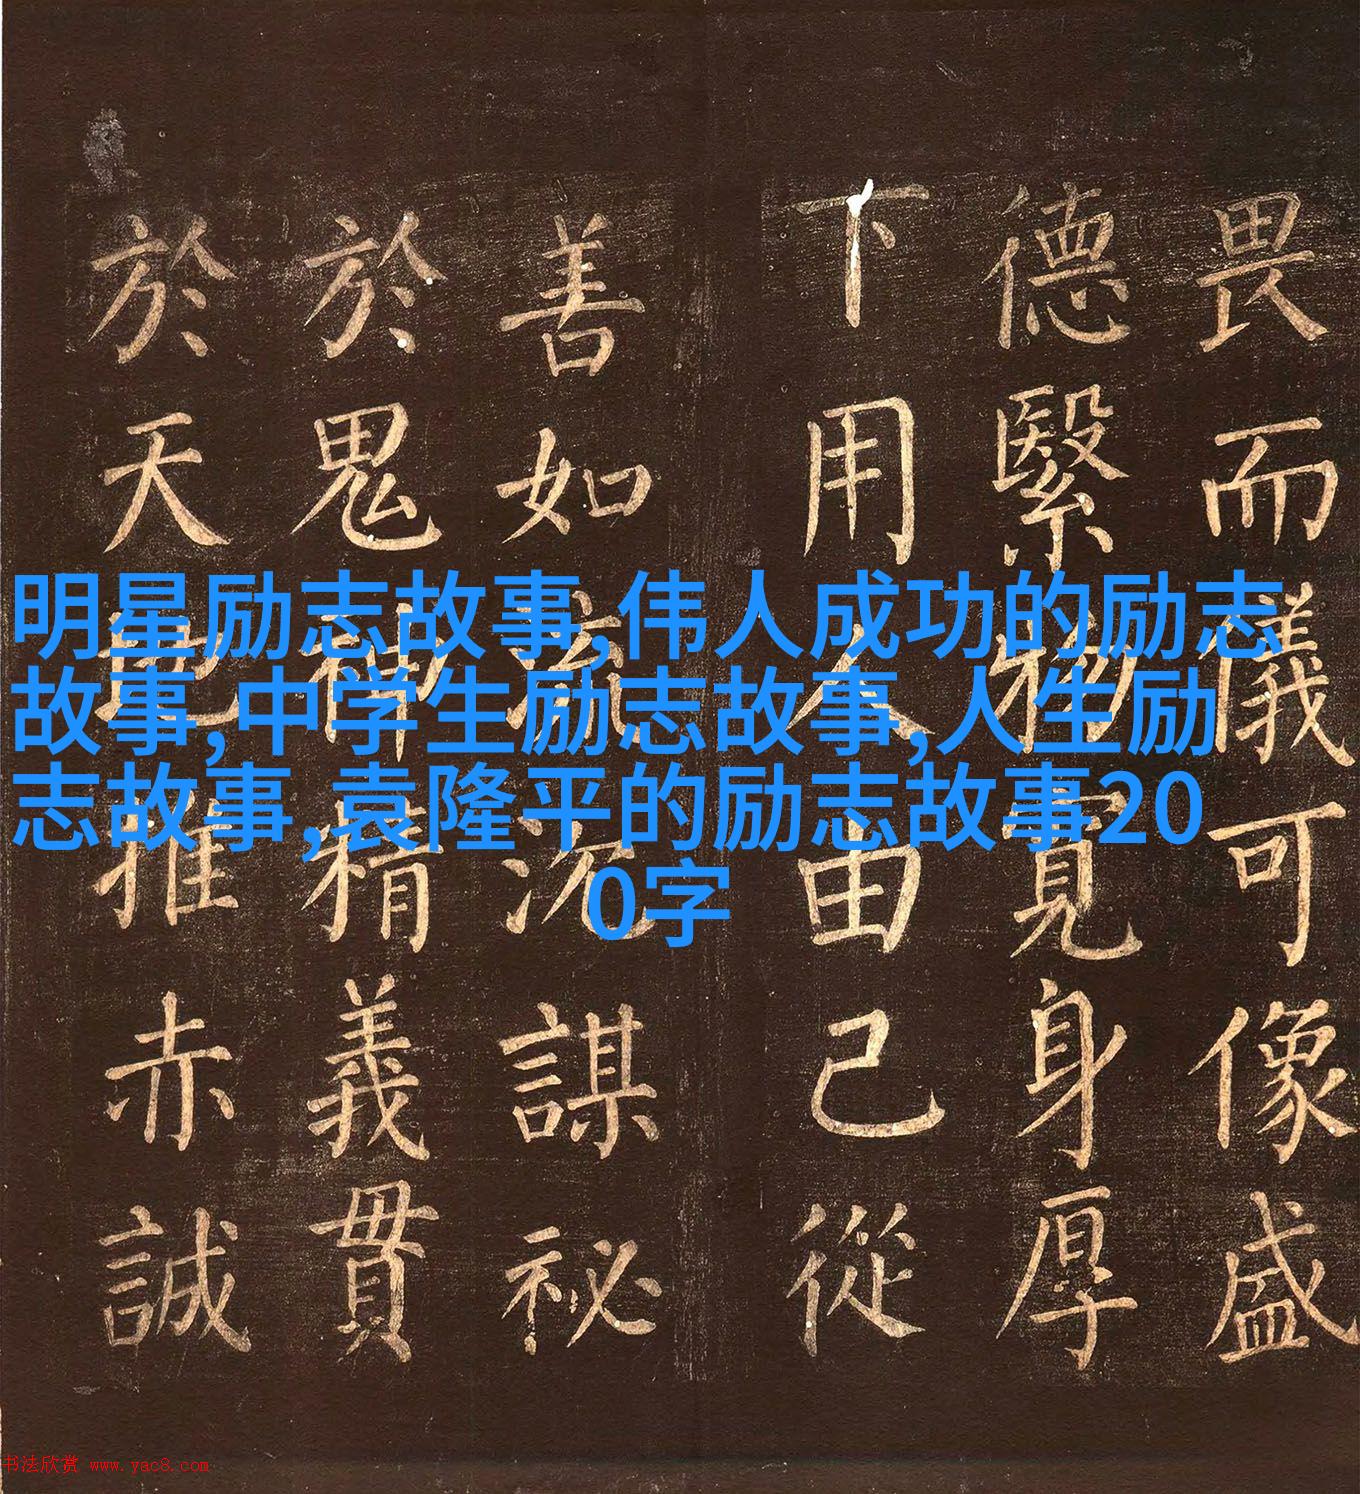 畏而儀可像盛
德繄物寬身厚
下用人由己從
善如流沉謀祕
於鬼神精義貫
於天地推赤誠
明星励志故事,伟人成功的励志
故事,中学生励志故事,人生励
志故事,袁隆平的励志故事20
0字
书法欣赏 www.yac8.com